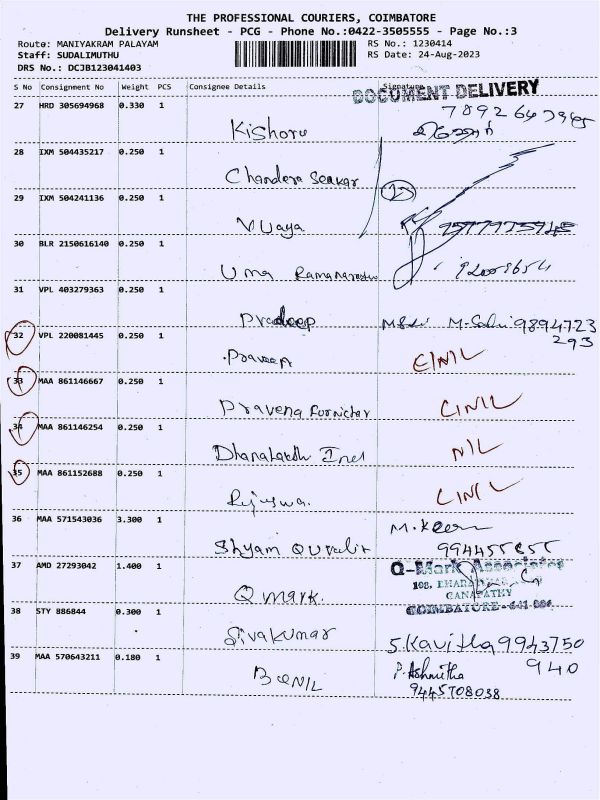 THE PROFESSIONAL COURIERS, COIMBATORE
Delivery Runsheet - PCG - Phone No.:0422-3505555 - Page No.:3
Route: MANIYAKRAM PALAYAM RS No.: 1230414
Staff: SUDALIMUTHU RS Date: 24-Aug-2023
DRS No.: DCJB123041403
S No Consignment No Weight PCS Consignee Details Signature
DOCUMENT DELIVERY
27 HRD 305694968 0.330 1
Kishore
28 IXM 504435217 0.250 1
Chandera Seakar
29 IXM 504241136 0.250 1
Vijaya
30 BLR 2150616140 0.250 1
Uma
31 VPL 403279363 0.250 1
Pradeep 9894723
293
32 VPL 220081445 0.250 1
Praveen
33 MAA 861146667 0.250 1
Pravena Furnictar CINIL
34 MAA 861146254 0.250 1
NIL
35 MAA 861152688 0.250 1
CINIL
36 MAA 571543036 3.300 1
Shyam
37 AMD 27293042 1.400 1
Q mark. Q-Mark Associates
GANAPATHY
COIMBATORE - 641 006
38 STY 886844 0.300 1
Sivakumar S. Kavitha 9943750
940
39 MAA 570643211 0.180 1
P. Ashmitha
9445708038